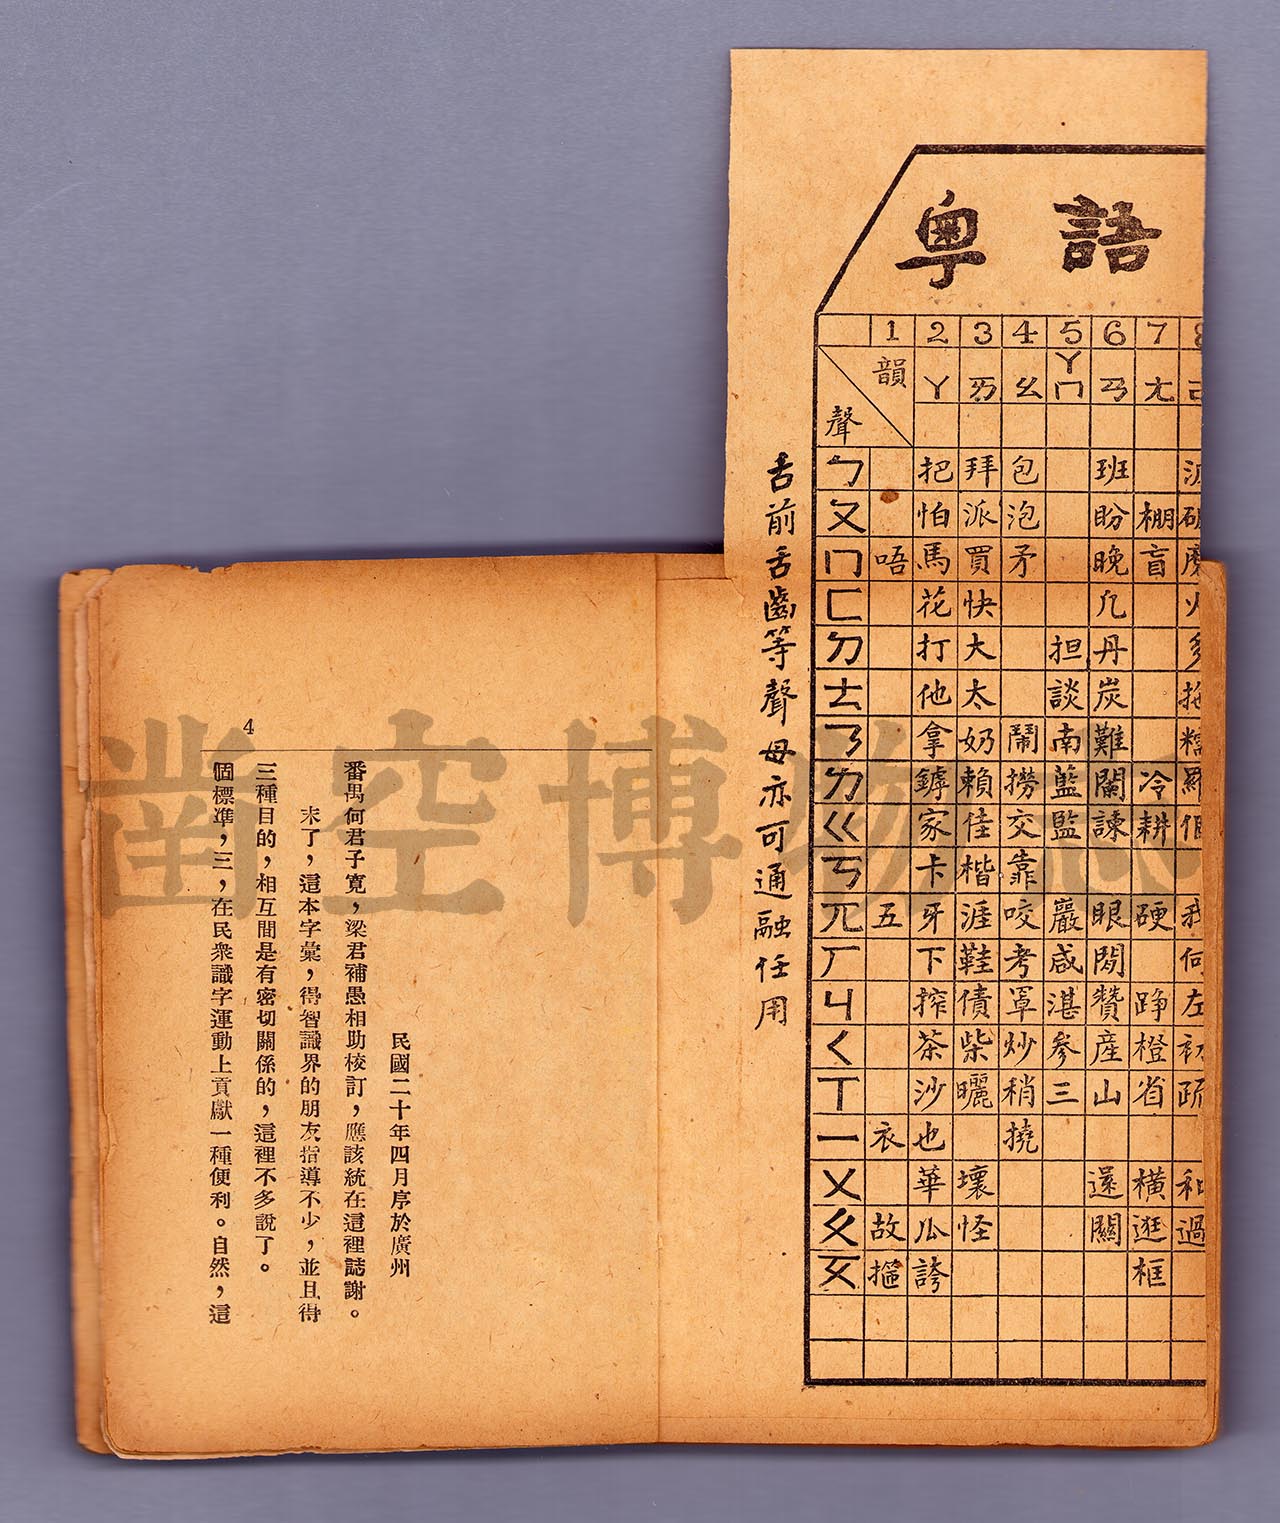 4
個標準，三，在民衆識字運動上貢獻一種便利。自然，這
三種目的，相互間是有密切關係的，這裡不多說了。
末了，這本字彙，得智識界的朋友指導不少，並且得
番禺何君子寬，梁君補愚相助校訂，應該統在這裡誌謝。
民國二十年四月序於廣州
舌前舌齒等聲母亦可通融任用
粵語
1 2 3 4 5 6 7 8
韻 ㄚ ㄞ ㄠ ㄚㄇ ㄢ ㄤ
聲
ㄅ 把 拜 包 班
ㄆ 怕 派 泡 盼 棚
ㄇ 唔 馬 買 矛 晚 盲
ㄈ 花 快 凡 火
ㄉ 打 大 担 丹 多
ㄊ 他 太 談 炭 拖
ㄋ 拿 奶 鬧 南 難 糯
ㄌ 鎼 賴 撈 藍 闌 冷 羅
ㄍ 家 佳 交 監 諫 耕 個
ㄎ 卡 楷 靠
ㄫ 五 牙 涯 咬 巖 眼 硬 我
ㄏ 下 鞋 考 咸 閒 何
ㄐ 搾 債 罩 湛 贊 踭 左
ㄑ 茶 柴 炒 參 產 橙 初
ㄒ 沙 曬 稍 三 山 省 疏
ㄧ 衣 也 撓
ㄨ 華 壞 還 橫 和
故 瓜 怪 關 逛 過
摳 誇 框
凿空博物志